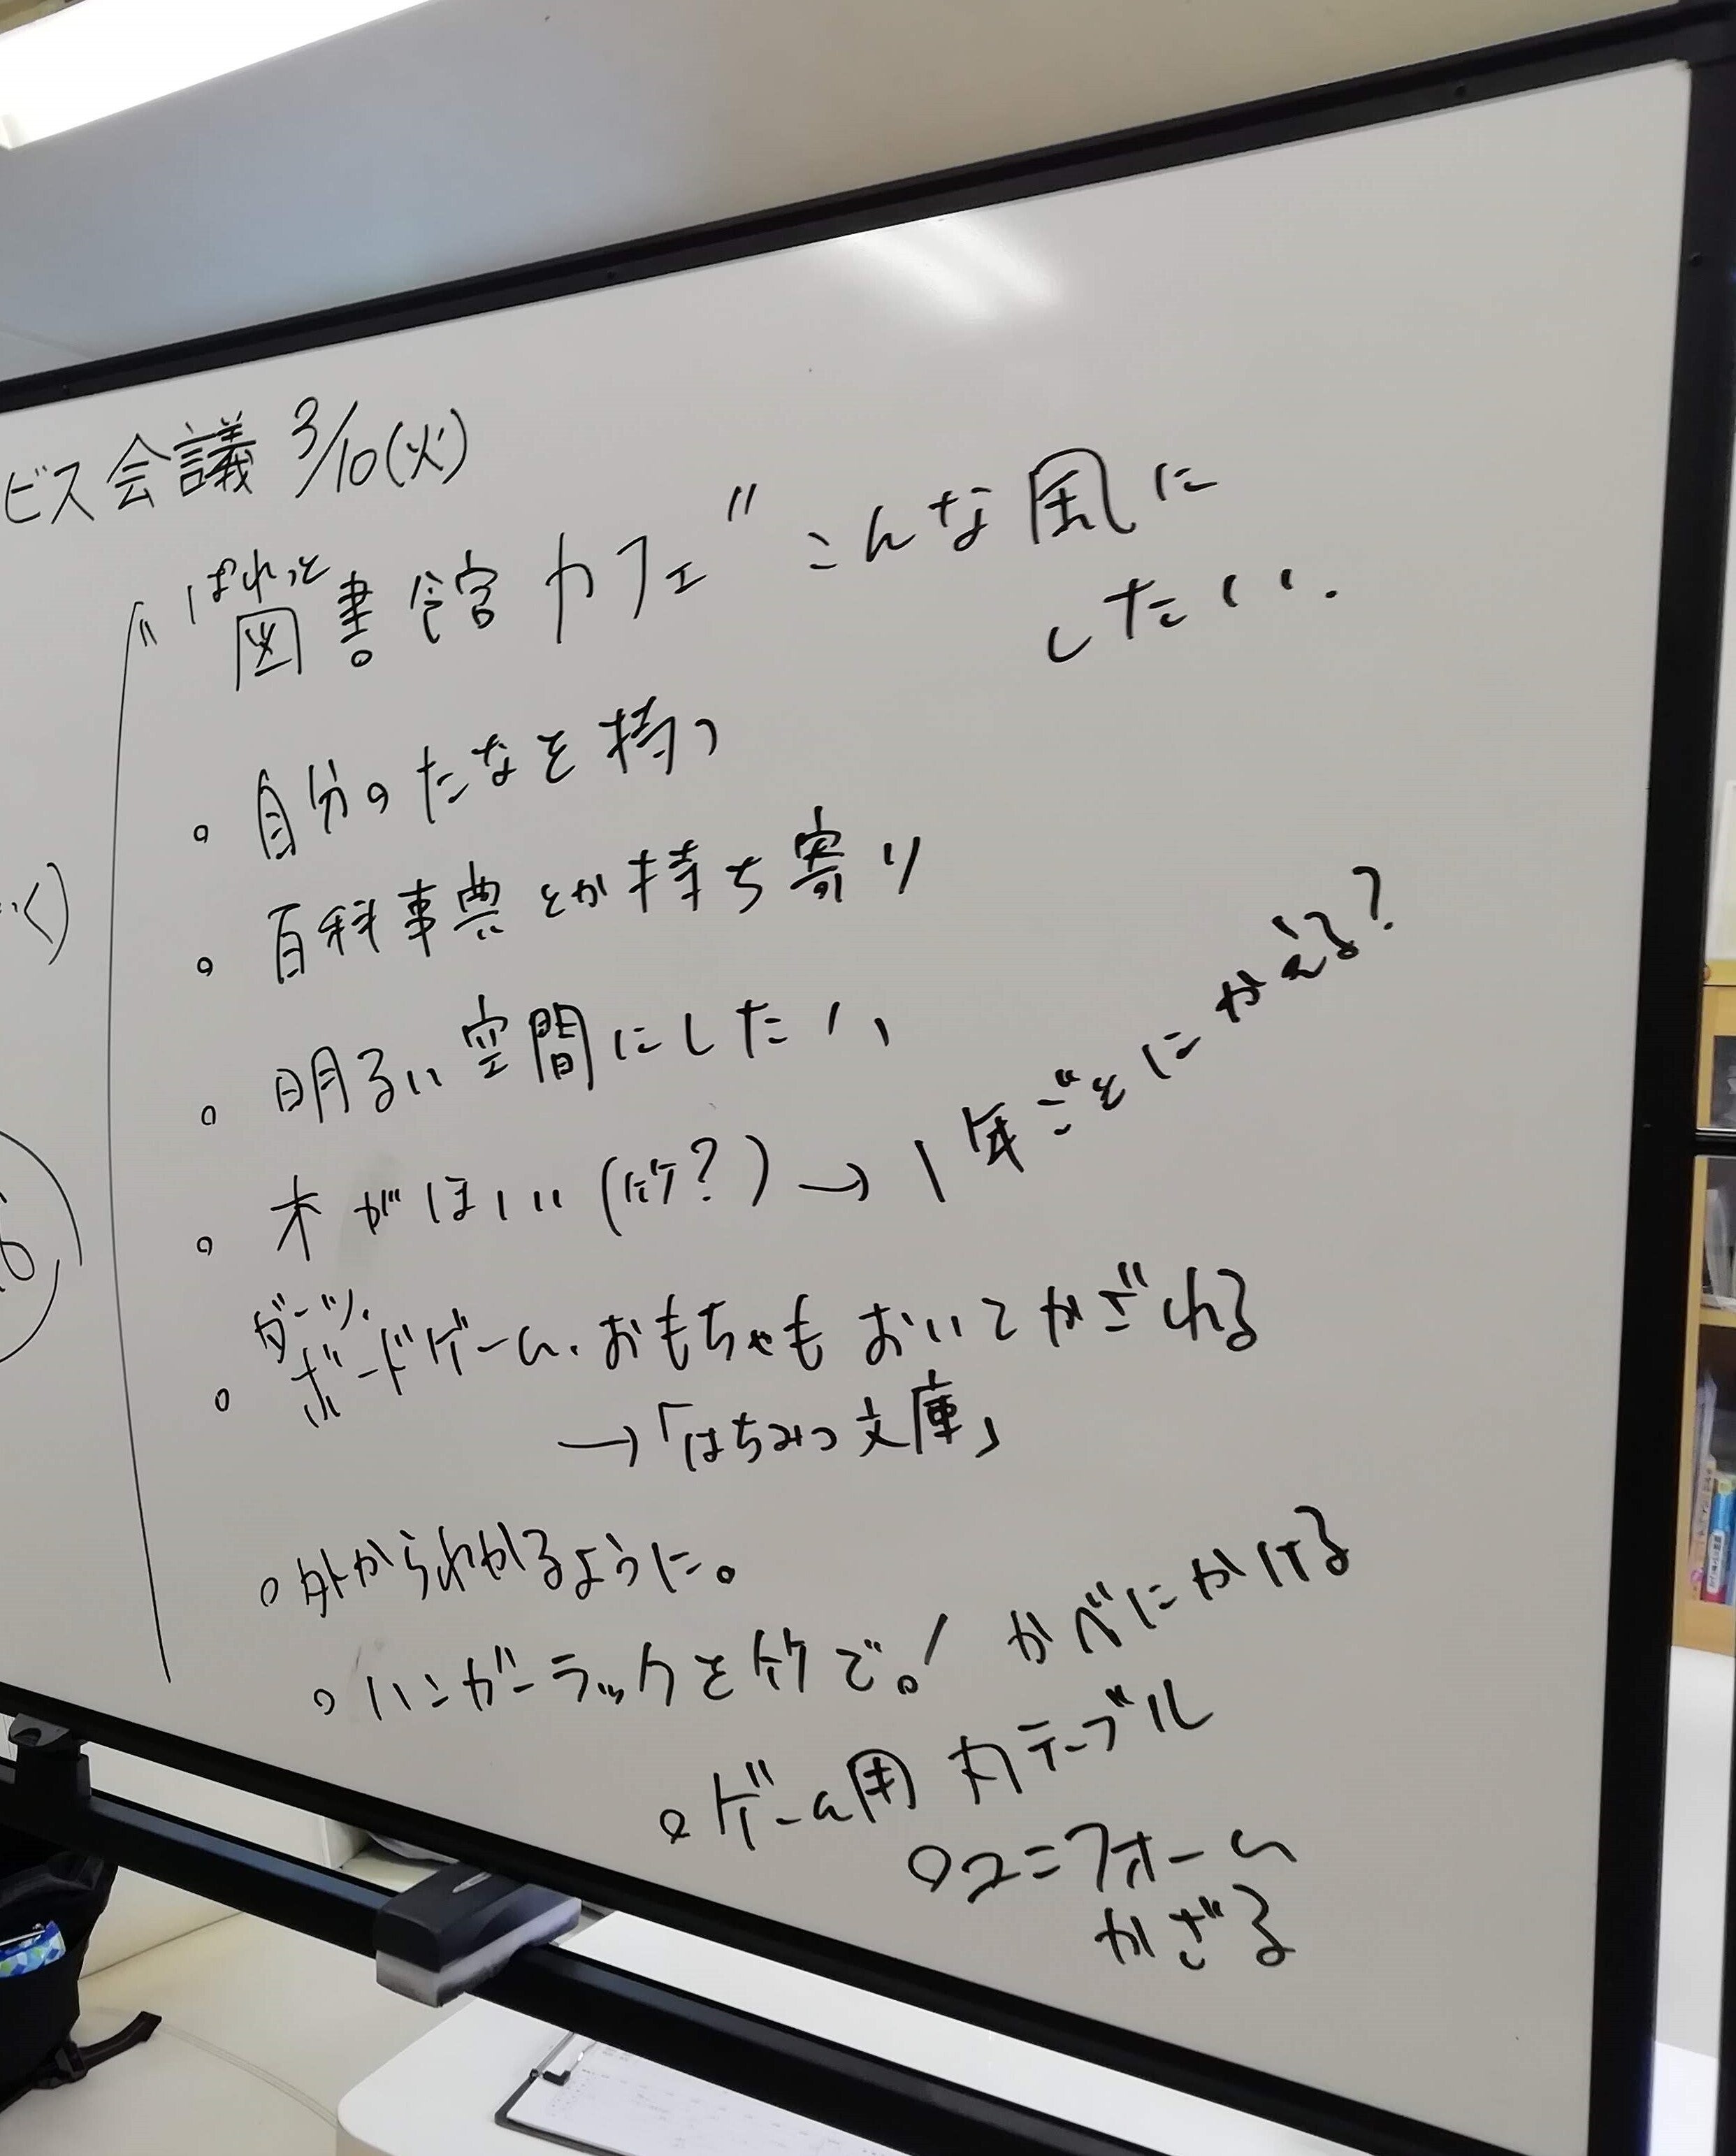 ビス会議 3/10(火)
ぱれっと
"図書館カフェ" こんな風に
したい.
。自分のたなを持つ
。百科事典とか持ち寄り
。明るい空間にしたい
。木がほしい(竹?)→1年ごとにかえる?
ダーツ、
。ボードゲーム、おもちゃもおいてかざれる
→「はちみつ文庫」
。外からわかるように。
。ハンガーラックを竹で。! かべにかける
。ゲーム用 丸テーブル
。ユニフォーム
かざる